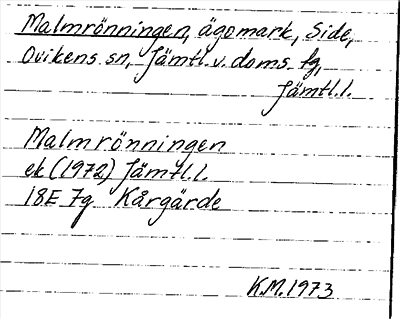 Malmrönningen, ägomark, Side,
Ovikens sn, Jämtl. v. doms. fg,
Jämtl.l.
Malmrönningen
ek (1972) Jämtl.l.
18E 7g Kårgärde
K.M. 1973